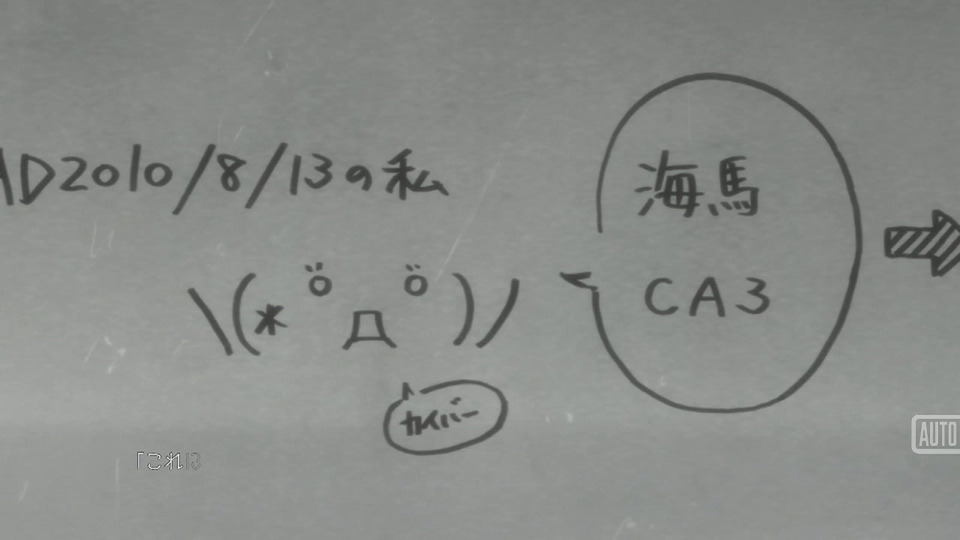 AD2010/8/13の私
\(* ﾟДﾟ )/
カイバー
海馬
CA3
AUTO
「これは